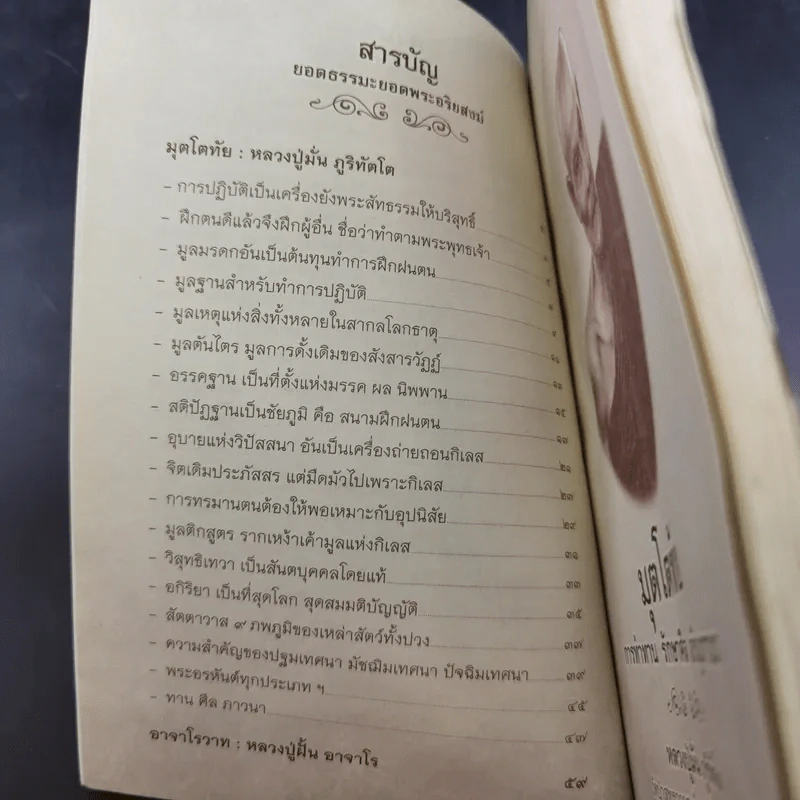 สารบัญ
ยอดธรรมะยอดพระอริยสงฆ์
มุตโตทัย : หลวงปู่มั่น ภูริทัตโต
- การปฏิบัติเป็นเครื่องยังพระสัทธรรมให้บริสุทธิ์
- ฝึกตนดีแล้วจึงฝึกผู้อื่น ชื่อว่าทำตามพระพุทธเจ้า
- มูลมรดกอันเป็นต้นทุนทำการฝึกฝนตน
- มูลฐานสำหรับทำการปฏิบัติ
- มูลเหตุแห่งสิ่งทั้งหลายในสากลโลกธาตุ
- มูลตันไตร มูลการดั้งเดิมของสังสารวัฏฏ์ ๑๑
- อรรคฐาน เป็นที่ตั้งแห่งมรรค ผล นิพพาน ๑๓
- สติปัฏฐานเป็นชัยภูมิ คือ สนามฝึกฝนตน ๑๕
- อุบายแห่งวิปัสสนา อันเป็นเครื่องถ่ายถอนกิเลส ๑๗
- จิตเดิมประภัสสร แต่มืดมัวไปเพราะกิเลส ๒๑
- การทรมานตนต้องให้พอเหมาะกับอุปนิสัย ๒๓
- มูลติกสูตร รากเหง้าเค้ามูลแห่งกิเลส ๒๙
- วิสุทธิเทวา เป็นสันตบุคคลโดยแท้ ๓๑
- อกิริยา เป็นที่สุดโลก สุดสมมติบัญญัติ ๓๓
- สัตตาวาส ๙ ภพภูมิของเหล่าสัตว์ทั้งปวง ๓๕
- ความสำคัญของปฐมเทศนา มัชฌิมเทศนา ปัจฉิมเทศนา ๓๗
- พระอรหันต์ทุกประเภท ฯ ๓๙
- ทาน ศีล ภาวนา ๔๕
อาจาโรวาท : หลวงปู่ฝั้น อาจาโร ๔๗
๕๙